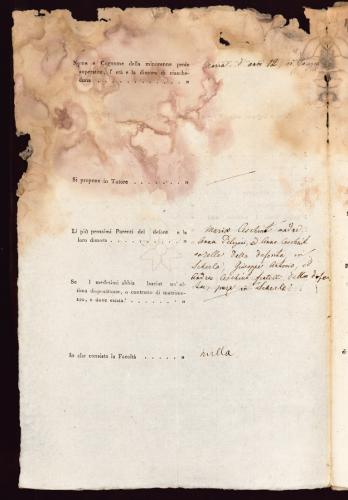 Nome e Cognome della minorenne prole
superstite, l' età e la dimora di ciasche-
duno . . . . . . . . . . . „
d' anni 12, in
Si propone in Tutore . . . . . . . „
Li più prossimi Parenti del defunto e la
loro dimora . . . . . . . . . . „
Maria Ceschiat madre
Anna Ceschiat
sorelle della defunta in
Giuseppe Antonio, ed
Andrea Ceschiat fratelli della defun
ta, pure in
Se i medesimi abbia lasciat un' ul-
tima disposizione, o contratto di matrimo-
nio, e dove esista? . . . . . . . „
In che consista la Facoltà . . . . . „
nulla